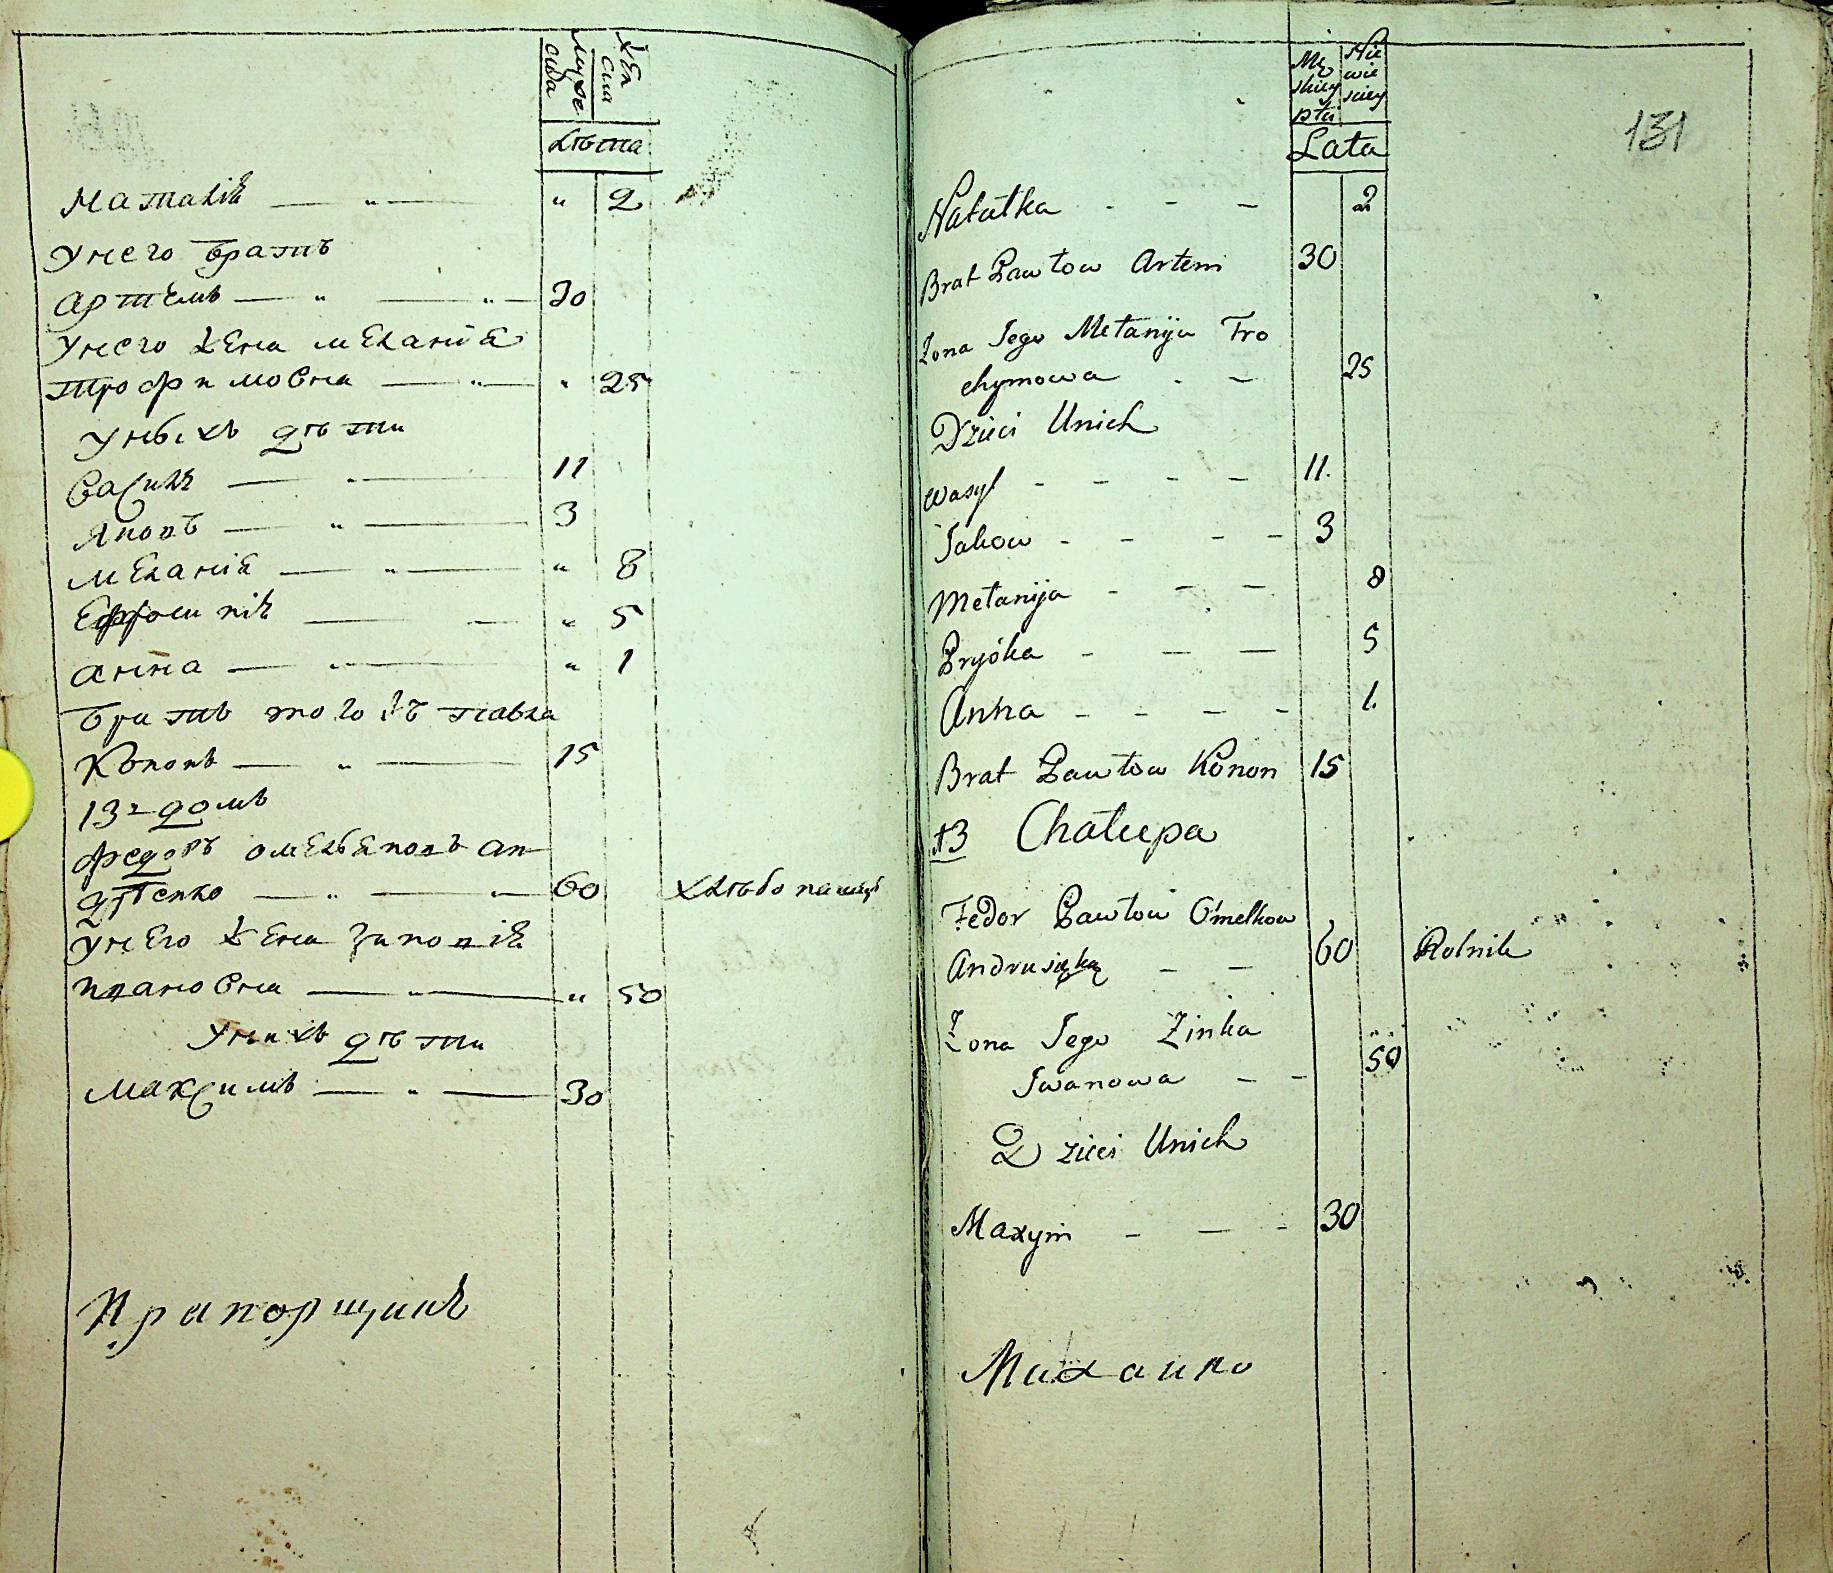 Муже
ска
Жен
ска
Лѣта
Наталія — " — " 2
У него братъ
Артемъ — " — " — 30
У него жена Меланія
Трофимовна — " — " 25
У ныхъ дѣти
Василь — " — 11
Яковъ — " — 3
Меланія — " — " 8
Ефросинія — — " 5
Анна — " — " 1
Братъ того жъ Павла
Кононъ — " — 15
13 домъ
Федоръ Омельяновъ Ан
дрѣенко — " — " — 60 хлѣбопашецъ
У него жена Зиновія
Ивановна — " — " 50
У нихъ дѣти
Максимъ — " — 30
Прапорщикъ
Mę
skiey
płci
Nie
wie
sciey
Lata
131
Natałka - - - 2
Brat Pawłow Artem 30
Żona Jego Mełanija Tro
chymowa - - 25
Dzieci Unich
Wasyl - - - - 11.
Jakow - - - - 3
Mełanija - - - 8
Pryśka - - - 5
Anna - - - - 1.
Brat Pawłow Konon 15
13 Chałupa
Fedor Pawłow Omelkow
60 Rolnik
Żona Jego Zinka
Jwanowa - - 50
Dzieci Unich
Maxym - - - 30
Михайло